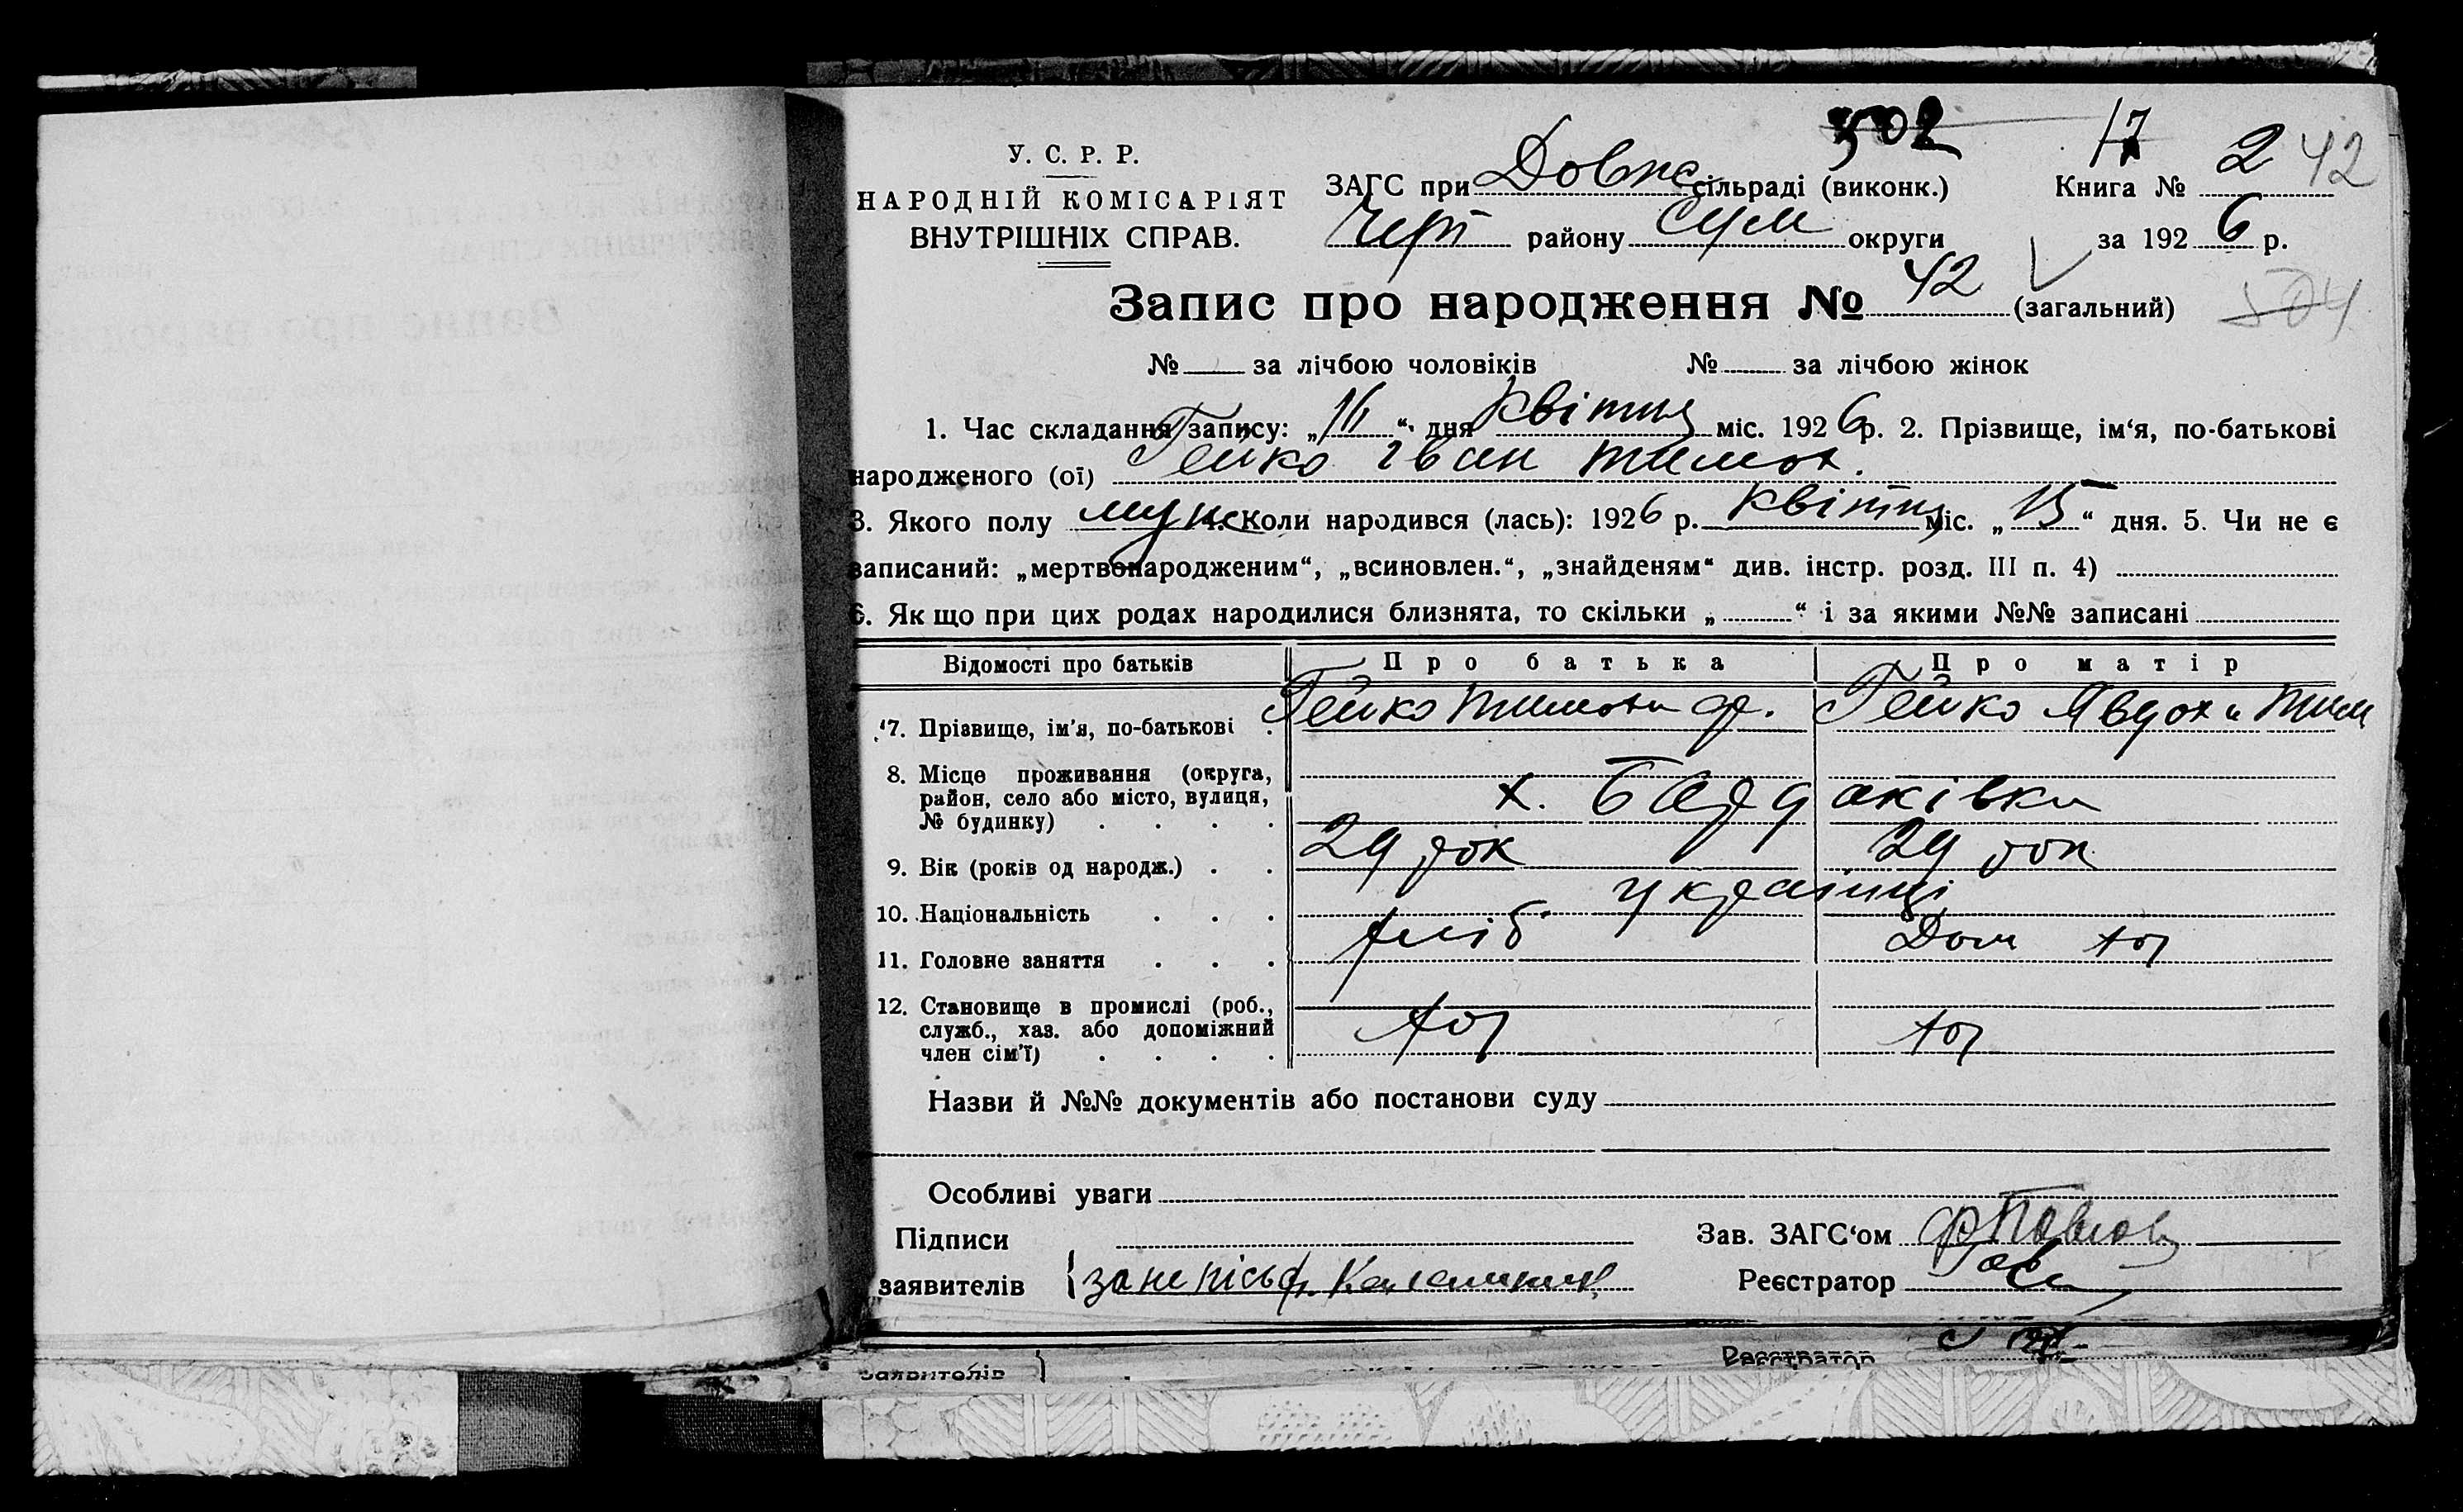 502 17
У. С. Р. Р.
НАРОДНІЙ КОМІСАРІЯТ
ВНУТРІШНІХ СПРАВ.
ЗАГС при Довж сільраді (виконк.) Книга № 2 42
Черт району Сум округи за 1926 р.
Запис про народження № 42 (загальний) 504
№ за лічбою чоловіків № за лічбою жінок
1. Час складання запису: „16“ дня квітня міс. 1926 р. 2. Прізвище, ім‘я, по-батькові
народженого (ої) Гейко Іван Тимох.
3. Якого полу муж 4. Коли народився (лась): 1926 р. квітня міс. „15“ дня. 5. Чи не є
записаний: „мертвонародженим“, „всиновлен.“, „знайденям“ див. інстр. розд. III п. 4)
6. Як що при цих родах народилися близнята, то скільки „ “ і за якими №№ записані
Відомості про батьків Про батька Про матір
7. Прізвище, ім‘я, по-батькові Гейко Тимохи Гейко Явдохи Тим
8. Місце проживання (округа,
район, село або місто, вулиця,
№ будинку) х. Бардаківка
9. Вік (років од народж.) 29 рок 29 рок
10. Національність українці
11. Головне заняття хліб Дом хоз
12. Становище в промислі (роб.,
служб., хаз. або допоміжний
член сім‘ї) хоз хоз
Назви й №№ документів або постанови суду
Особливі уваги
Підписи Зав. ЗАГС‘ом
заявителів за не пісьм. Реєстратор
заявителів Реєстратор